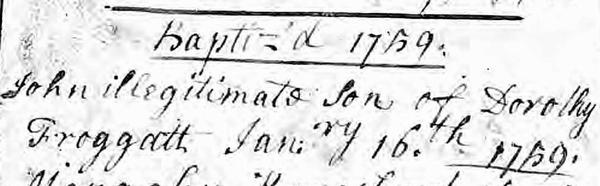 Baptiz'd 1759.
John illegitimate Son of Dorothy
Froggatt Jan:ry 16.th 1759.